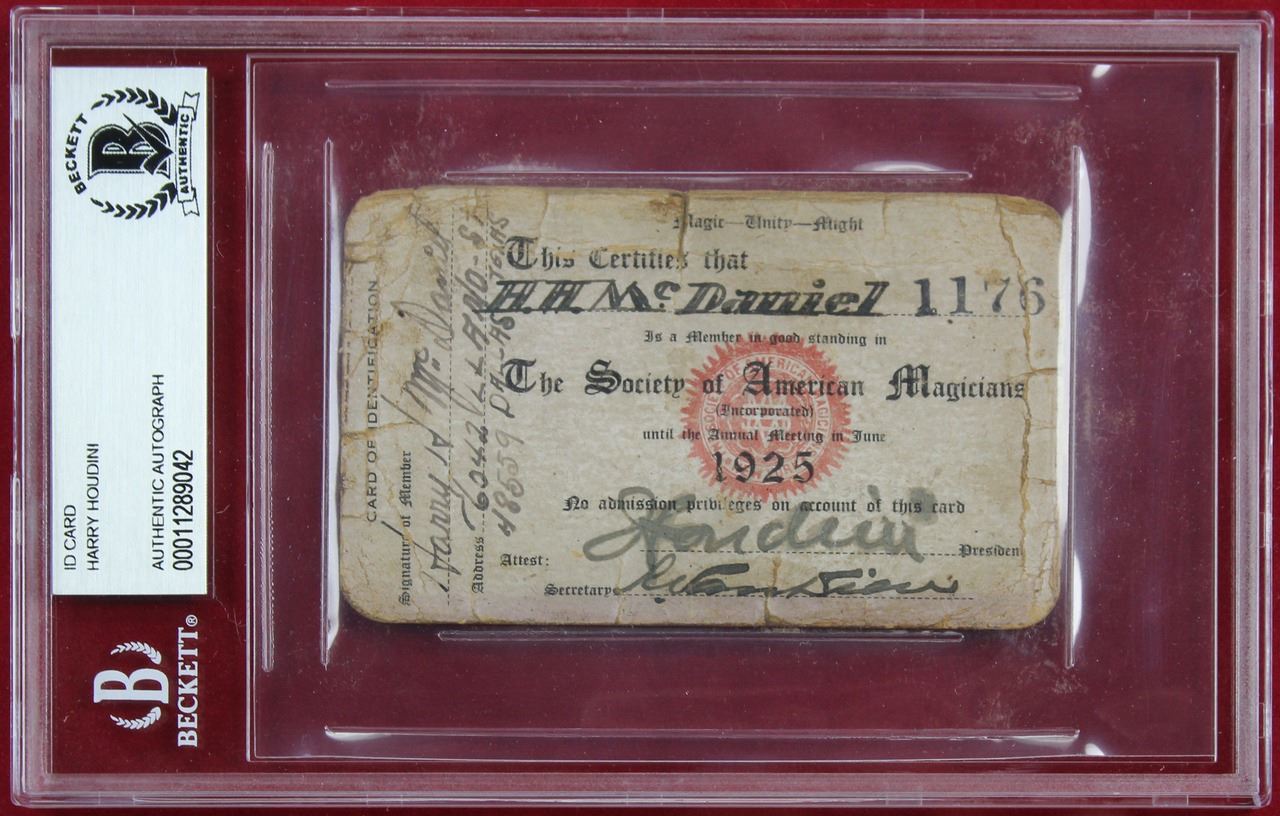 BECKETT
B
AUTHENTIC
ID CARD
HARRY HOUDINI
AUTHENTIC AUTOGRAPH
00011289042
B
BECKETT®
CARD OF IDENTIFICATION
Signature of Member
Harry H Mc Daniel
Address
Magic—Unity—Might
This Certifies that
H.H. Mc Daniel 1176
Is a Member in good standing in
The Society of American Magicians
(Incorporated)
until the Annual Meeting in June
1925
SOCIETY OF AMERICAN MAGICIANS
No admission privileges on account of this card
Houdini
Presiden
Attest:
Secretary